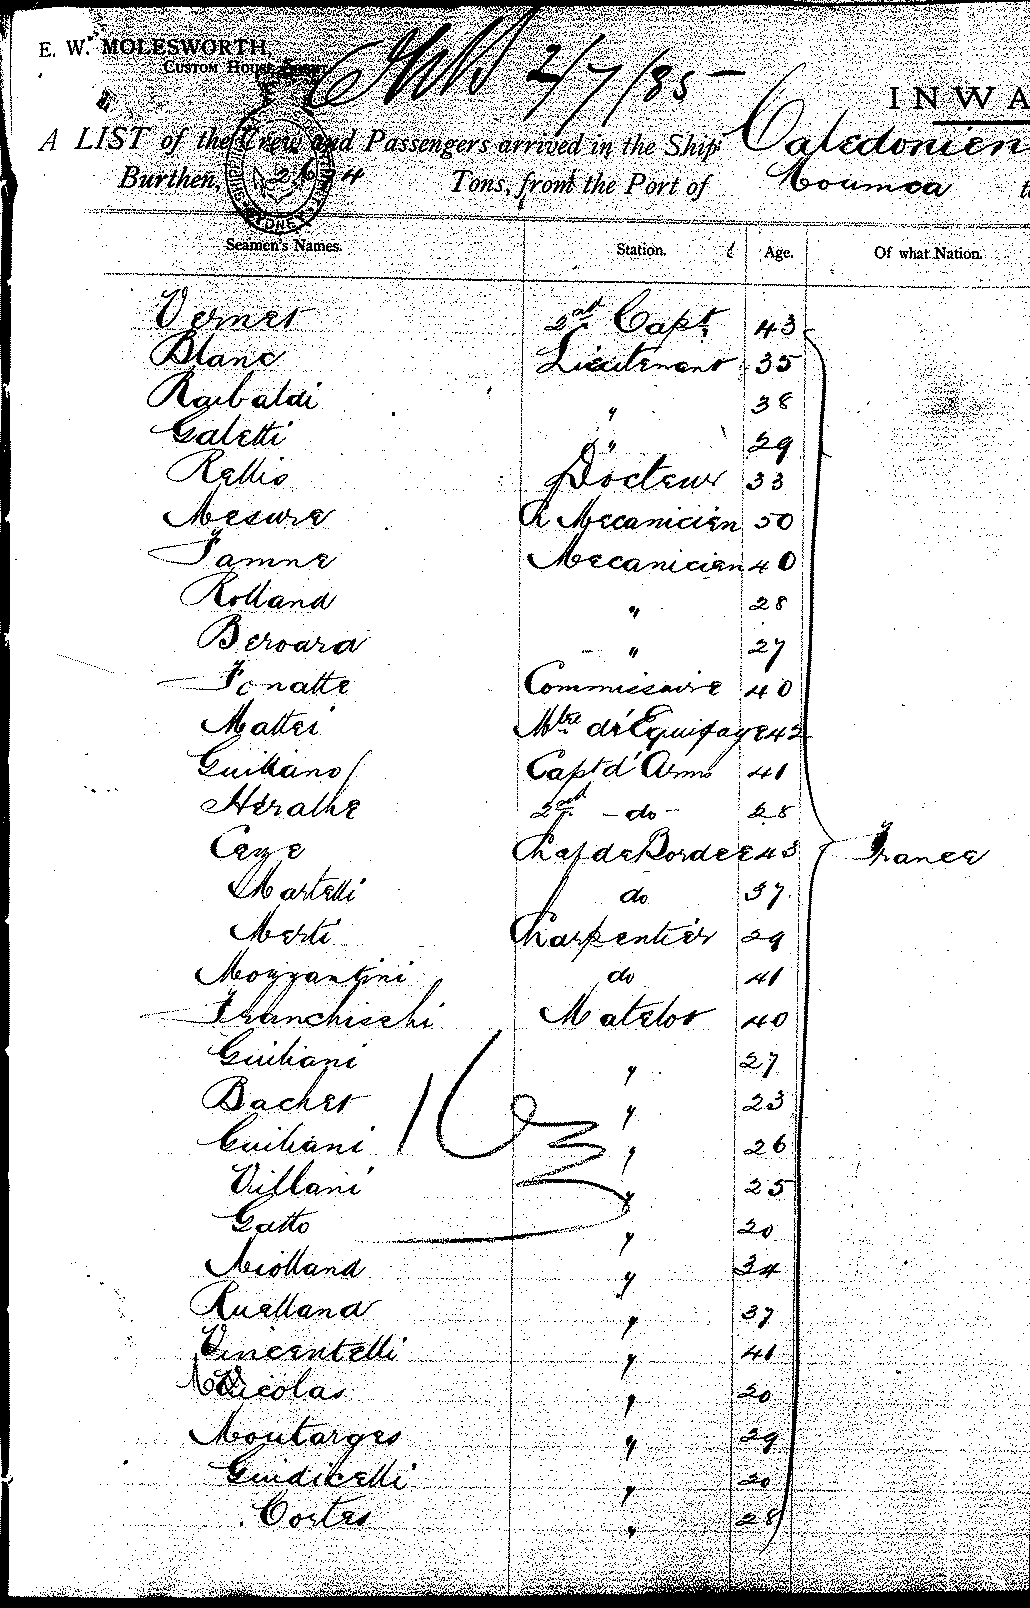 E. W. MOLESWORTH,
CUSTOM HOUSE
2/7/85
INWA
A LIST of the Crew and Passengers arrived in the Ship Caledonien
Burthen, Tons, from the Port of Noumea
Seamen's Names. Station. Age. Of what Nation.
Vernet 2nd Capt. 43
Blanc Lieutenant 35
Raibaldi " 38
Galetti " 29
Rellis Docteur 33
Mesure Ch Mecanicien 50
Famne Mecanicien 40
Rolland " 28
Beroard " 27
Fonatte Commissaire 40
Mattei Mtre d'Equipage 42
Guiliano Capt d'Arms 41
Heralhe 2nd - do - 28
Ceze Chef de Bordee 43 France
Martelli do 37
Merti Charpentier 29
Mozzantini do 41
Franchischi Matelot 40
Guiliani " 27
Bachet " 23
Guiliani " 26
Villani " 25
Gatto " 20
Miolland " 34
Ruelland " 37
Vincentelli " 41
Nicolas " 20
Moutarges " 29
Guidicelli " 20
Cortes " 28